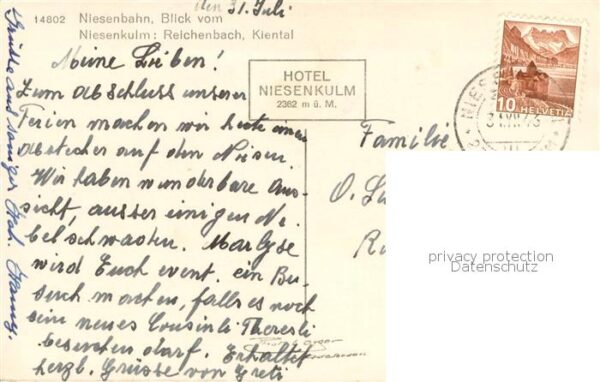 14802 Niesenbahn, Blick vom
Niesenkulm: Reichenbach, Kiental
den 31. Juli
Meine Lieben!
Zum Abschluss unserer
Ferien machen wir heute einen
Abstecher auf den Niesen.
Wir haben wunderbare Aus-
sicht, ausser einigen Ne-
belschwaden. Marlyse
wird Euch event. ein Be-
such machen, falls es noch
sein neues Cousinli Theresli
besuchen darf. Erhaltet
herzl. Grüsse von Greti
HOTEL
NIESENKULM
2362 m ü. M.
10 HELVETIA
Familie
O.
privacy protection
Datenschutz
Grüsse aus